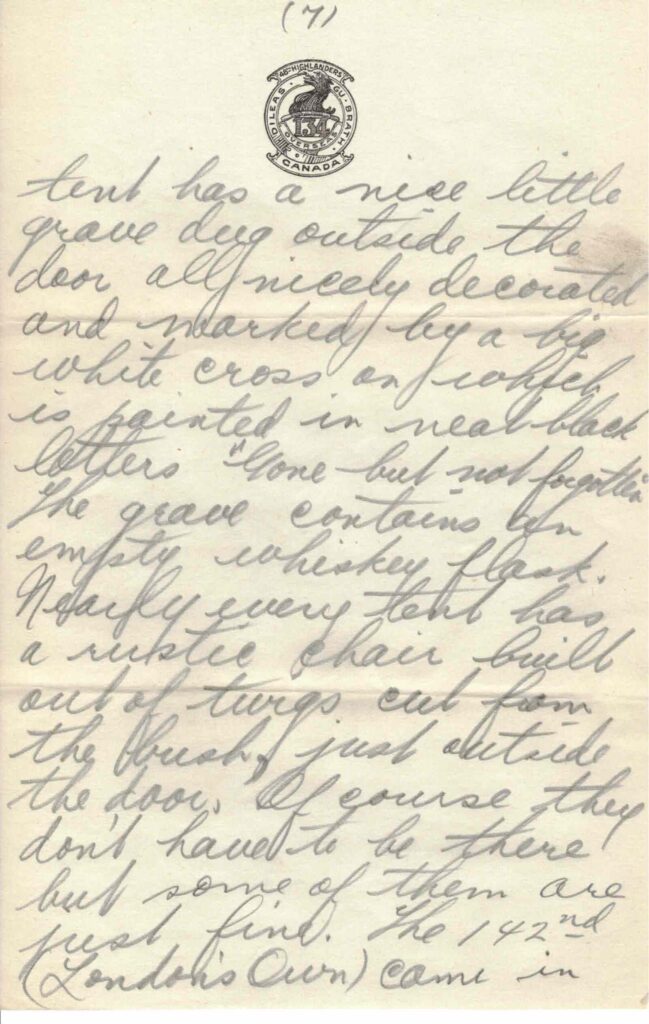 (7)
48TH HIGHLANDERS
DILEAS · GU · BRATH
134
OVERSEAS
CANADA
tent has a nice little
grave dug outside the
door all nicely decorated
and marked by a big
white cross on which
is painted in neat black
letters "Gone but not forgotten
The grave contains an
empty whiskey flask.
Nearly every tent has
a rustic chair built
out of twigs cut from
the bush, just outside
the door. Of course they
don't have to be there
but some of them are
just fine. The 142nd
(London's Own) came in